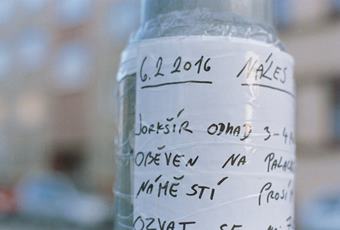 6.2 2016 NÁLES
JORKŠÍR ODHAD 3-4
OBĚVEN NA PALAC
NÁMĚSTÍ PROSÍM
OZVAT SE